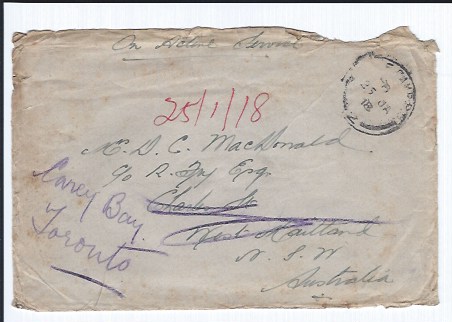 On Active Service
25/1/18
Mr. D. C. MacDonald.
c/o R. Fry Esq.
Charles St
West Maitland
N. S. W
Australia
Carey Bay.
Toronto
25 JA
18